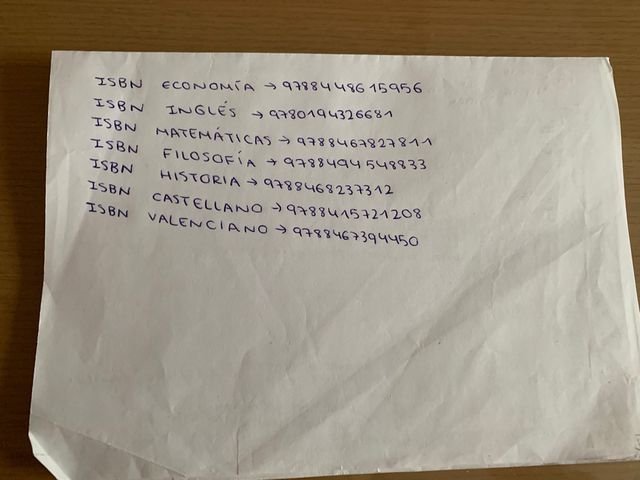 ISBN ECONOMÍA → 9788448615956
ISBN INGLÉS → 9780194326681
ISBN MATEMÁTICAS → 9788467827811
ISBN FILOSOFÍA → 9788494548833
ISBN HISTORIA → 9788468237312
ISBN CASTELLANO → 9788415721208
ISBN VALENCIANO → 9788467394450